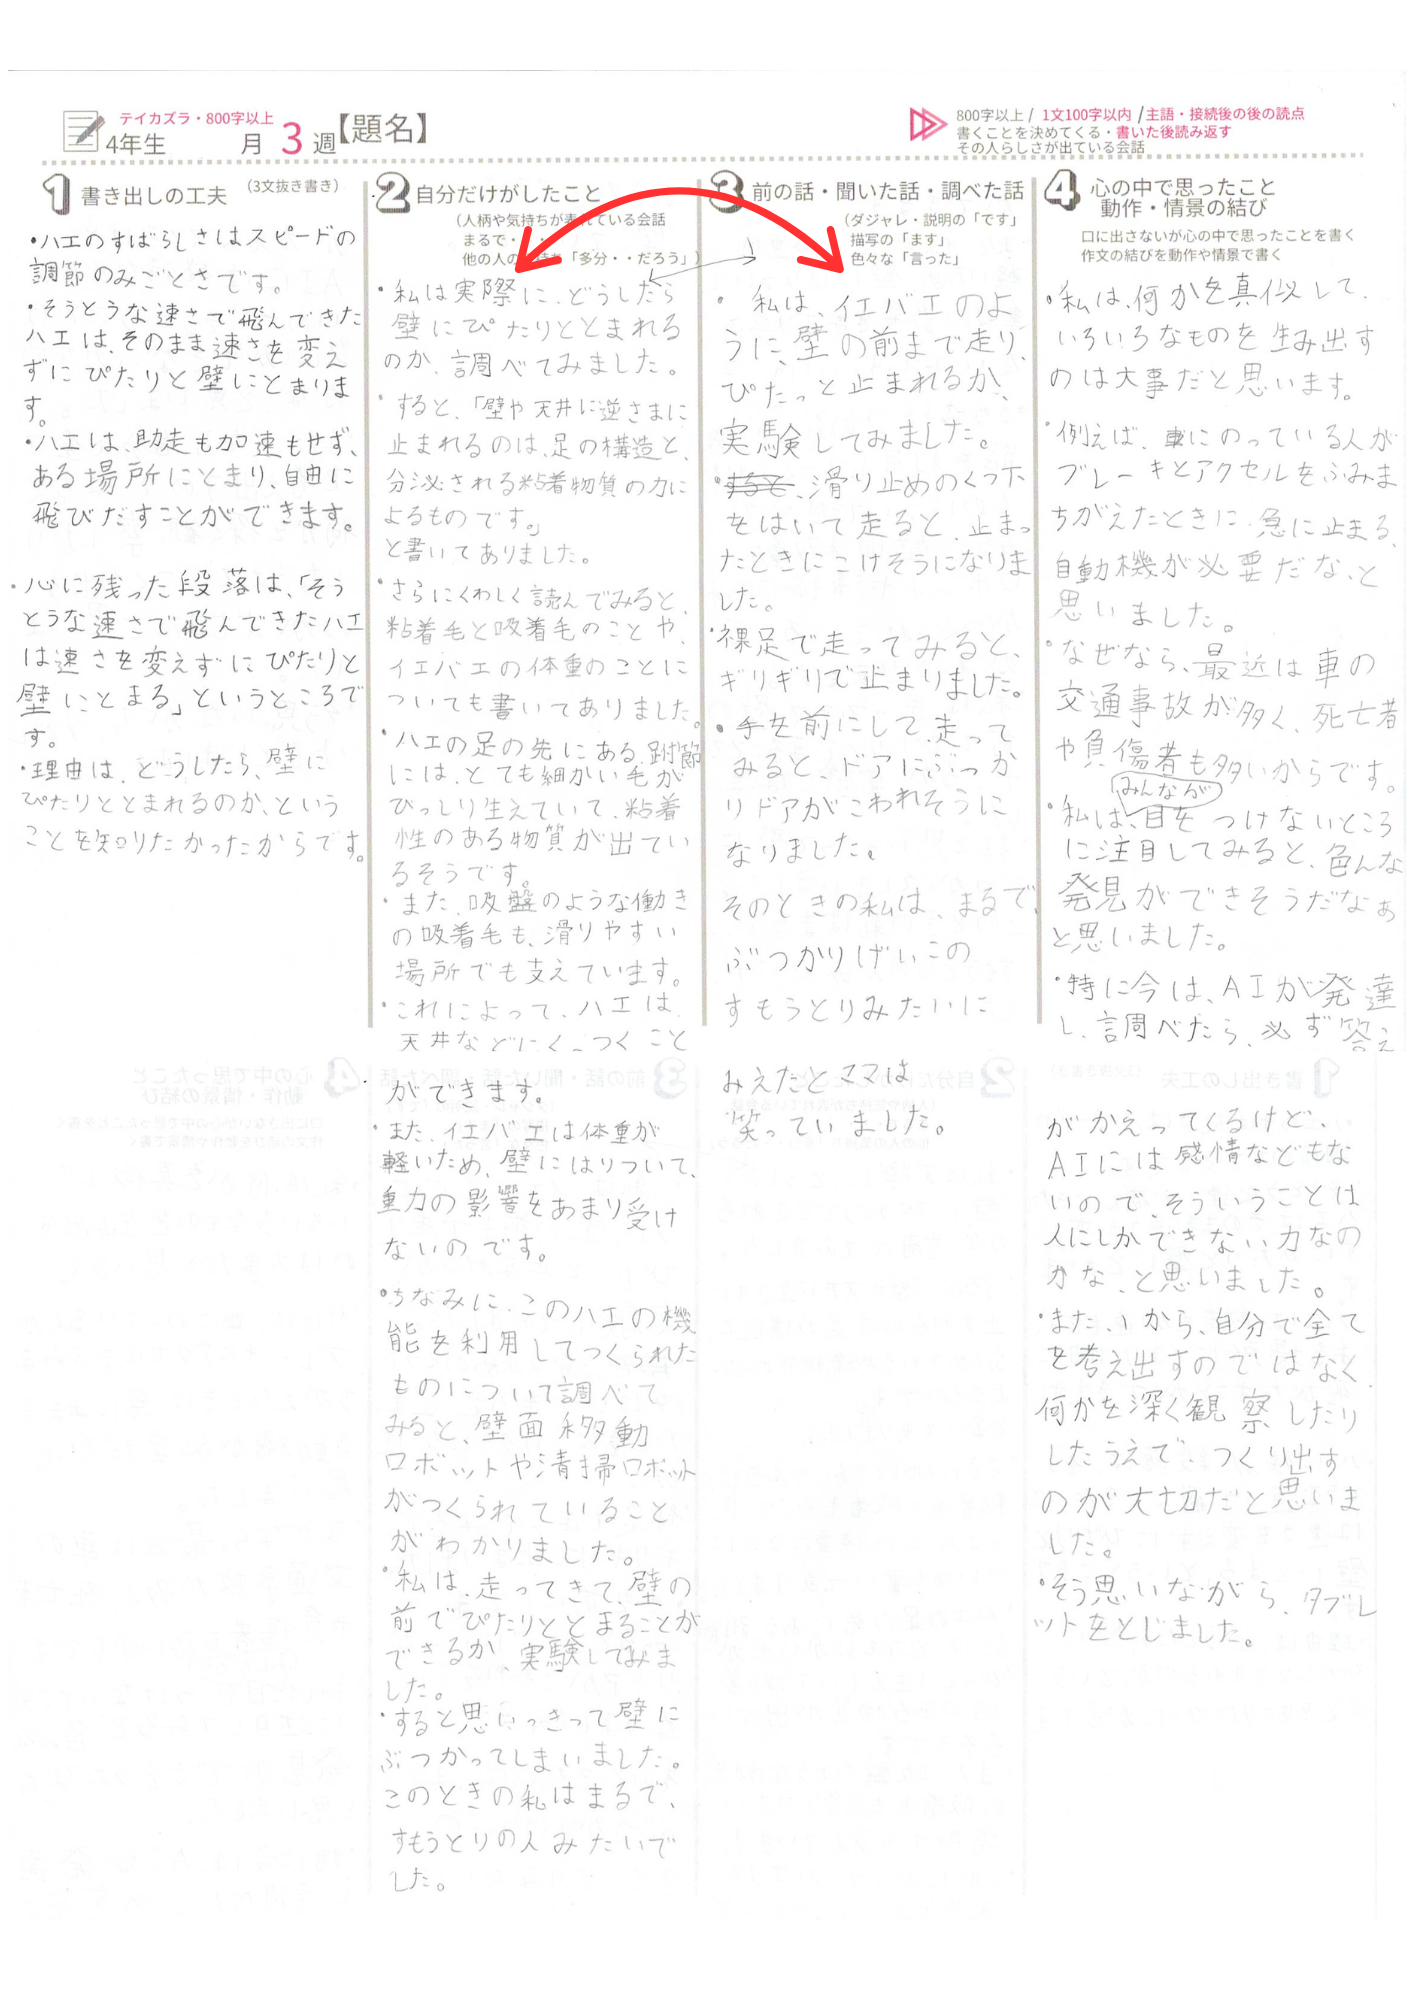 テイカズラ・800字以上
4年生 月 3 週【題名】
800字以上 / 1文100字以内 / 主語・接続後の後の読点
書くことを決めてくる・書いた後読み返す
その人らしさが出ている会話
1 書き出しの工夫 (3文抜き書き)
・ハエのすばらしさはスピードの
調節のみごとさです。
・そうとうな速さで飛んできた
ハエは、そのまま速さを変え
ずにぴたりと壁にとまりま
す。
・ハエは、助走も加速もせず、
ある場所にとまり、自由に
飛びだすことができます。
・心に残った段落は、「そう
とうな速さで飛んできたハエ
は速さを変えずにぴたりと
壁にとまる」というところで
す。
・理由は、どうしたら、壁に
ぴたりととまれるのか、という
ことを知りたかったからです。
2 自分だけがしたこと
(人柄や気持ちが表れている会話
まるで・
他の人の 持ち「多分・・だろう」)
・私は実際に、どうしたら
壁にぴたりととまれる
のか、調べてみました。
・すると、「壁や天井に逆さまに
止まれるのは、足の構造と、
分泌される粘着物質の力に
よるものです。」
と書いてありました。
・さらにくわしく読んでみると、
粘着毛と吸着毛のことや、
イエバエの体重のことに
ついても書いてありました。
・ハエの足の先にある、跗節
には、とても細かい毛が
びっしり生えていて、粘着
性のある物質が出てい
るそうです。
・また、吸盤のような働き
の吸着毛も、滑りやすい
場所でも支えています。
・これによって、ハエは、
天井などにくっつくこと
ができます。
・また、イエバエは体重が
軽いため、壁にはりついて、
重力の影響をあまり受け
ないのです。
・ちなみに、このハエの機
能を利用してつくられた
ものについて調べて
みると、壁面移動
ロボットや清掃ロボット
がつくられていること
がわかりました。
・私は、走ってきて、壁の
前でぴたりととまることが
できるか、実験してみま
した。
・すると思いっきって壁に
ぶつかってしまいました。
このときの私はまるで、
すもうとりの人みたいで
した。
3 前の話・聞いた話・調べた話
(ダジャレ・説明の「です」
描写の「ます」
色々な「言った」
・私は、イエバエのよ
うに、壁の前まで走り、
ぴたっと止まれるか、
実験してみました。
・、滑り止めのくつ下
をはいて走ると、止まっ
たときにこけそうになりま
した。
・裸足で走ってみると、
ギリギリで止まりました。
・手を前にして、走って
みると、ドアにぶつか
りドアがこわれそうに
なりました。
そのときの私は、まるで、
ぶつかりげいこの
すもうとりみたいに
みえたとママは
笑っていました。
4 心の中で思ったこと
動作・情景の結び
口に出さないが心の中で思ったことを書く
作文の結びを動作や情景で書く
・私は、何かを真似して、
いろいろなものを生み出す
のは大事だと思います。
・例えば、車にのっている人が
ブレーキとアクセルをふみま
ちがえたときに、急に止まる、
自動機が必要だな、と
思いました。
・なぜなら、最近は車の
交通事故が多く、死亡者
や負傷者も多いからです。
みんなが
・私は、目をつけないところ
に注目してみると、色んな
発見ができそうだなぁ
と思いました。
・特に今は、AIが発達
し、調べたら、必ず答え
がかえってくるけど、
AIには感情などもな
いので、そういうことは
人にしかできない力なの
かな、と思いました。
・また、1から、自分で全て
を考え出すのではなく
何かを深く観察したり
したうえで、つくり出す
のが大切だと思いま
した。
・そう思いながら、タブレ
ットをとじました。